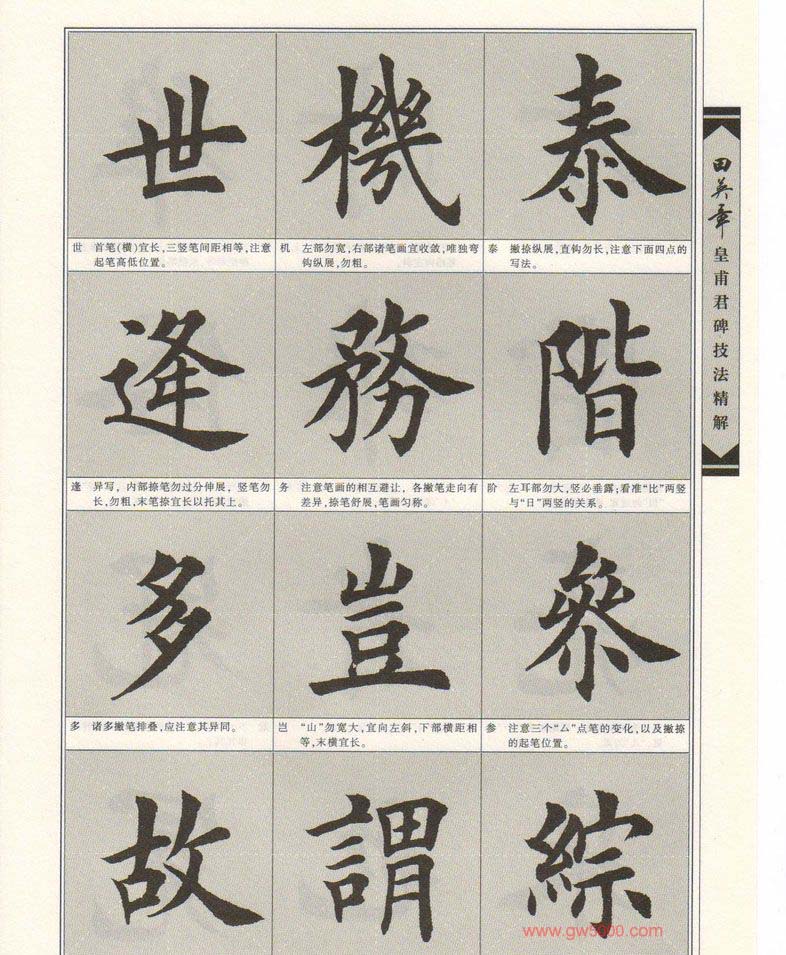 世 機 泰
世 首笔(横)宜长,三竖笔间距相等,注意
起笔高低位置。
机 左部勿宽,右部诸笔画宜收敛,唯独弯
钩纵展,勿粗。
泰 撇捺纵展,直钩勿长,注意下面四点的
写法。
逢 務 階
逢 异写,内部捺笔勿过分伸展,竖笔勿
长,勿粗,末笔捺宜长以托其上。
务 注意笔画的相互避让,各撇笔走向有
差异,捺笔舒展,笔画匀称。
阶 左耳部勿大,竖必垂露;看准“比”两竖
与“日”两竖的关系。
多 豈 叅
多 诸多撇笔排叠,应注意其异同。
岂 “山”勿宽大,宜向左斜,下部横距相
等,末横宜长。
参 注意三个“厶”点笔的变化,以及撇捺
的起笔位置。
故 謂 綜
田英章
皇甫君碑技法精解
www.gw5000.com